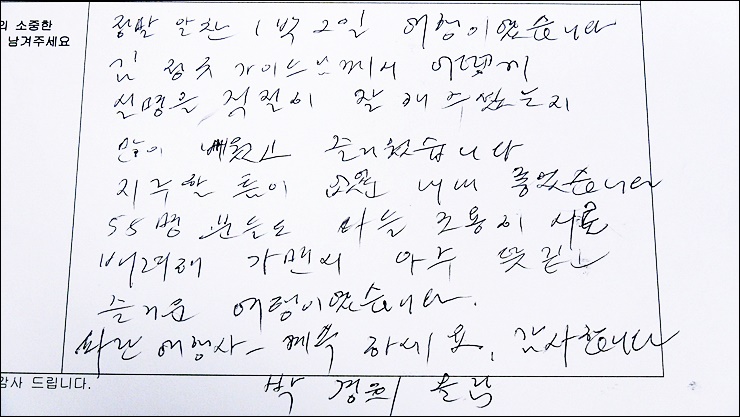 의 소중한
남겨주세요
정말 알찬 1박 2일 여행이었습니다
김 가이드님께서 어떻게
설명을 적절히 잘 해주셨는지
많이 배웠고 즐거웠습니다
지루할 틈이 없었고 내내 좋았습니다
55명 분들도 다들 조용히 서로
배려해 가면서 아주 뜻깊고
즐거운 여행이었습니다.
파란 여행사- 계속 하세요, 감사합니다
감사 드립니다.
박 경희 올림